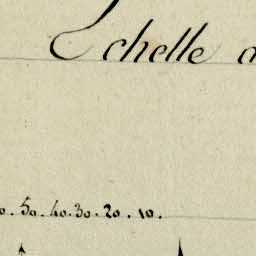 Echelle
50. 40. 30. 20. 10.